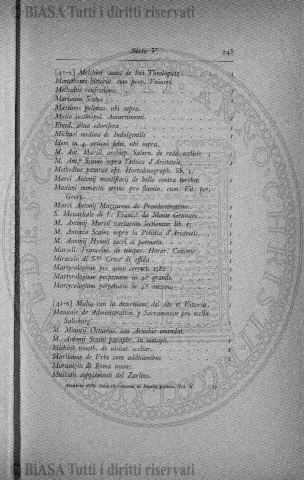 © BiASA Tutti i diritti riservati
Sisto Vº. 248
[41-2] Melchior canus de loci Theologicis
Manethonis histor. cum prep. Funeri
Methodus confessionis
Marianus Scotus
Martianus polonus. ubi supra.
Mutio instinopol. Avvertimenti.
Eiusd. selva odorifera
Michael medina de Indulgentiis
Idem in 4. articuli fidei, ubi supra.
M. Ant. Marsil. archiep. Salern. de redd. eccliciis
M. Ant.º Scaino sopra l'ethica d'Aristotele
Methodus petarae ofs. Hortodonagraph. lib.
Marci Antonij montiflorij de bello contra turchos
Maximi monachi sermo pro flamin. cum. Vit. per Greg.
Marci Antonij Mazzaroni de Praedestinatione
S. Menechale di F. Franc.º da Monte Granaro
M. Antonij Mureti variarum lectionum lib.
M. Antonio Scaino sopra la Politica d'Aristotele
M. Antonij Flaminij sacri et poemata
Marcell. Francolini de tempor. Horar. Canonic.
Miracolo di S.ta Croce di ofida
Martyrologium pro anno correcti 1582
Martyrologium perpetuum in 3º grande
Martyrologium perpetuum in 4.º mezano
[41-n] Malta con la descrittione del sito et Vittoria
Manuale de Administration. 7 Sacramentor pro ecclia Salisburg.
M. Minucij Octavius cum Arnobio emendat.
M. Antonij Scaini paraphr. in metaph.
Michael timoth. de visitat. eccliar.
Marliano de Vrbe cum additionibus
Maraviglie di Roma nuove
Musicali supplementi del Zarlino
© BiASA Tutti i diritti riservati